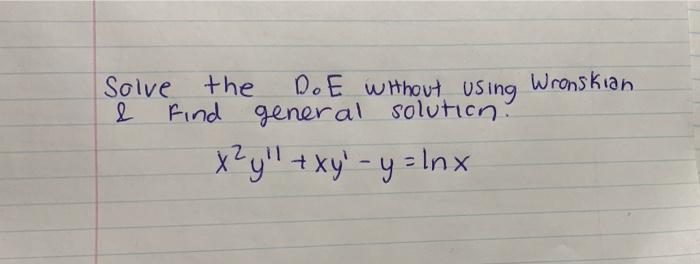 Solve the D.E without using Wronskian
& Find general solution.
x²y'' + xy' - y = ln x